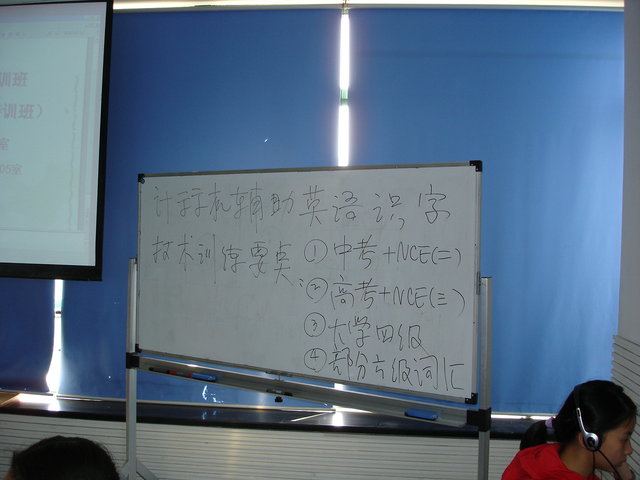 训班
训班）
室
05室
计算机辅助英语识字
技术训练要点：①中考+NCE(二)
②高考+NCE(三)
③大学四级
④部分六级词汇